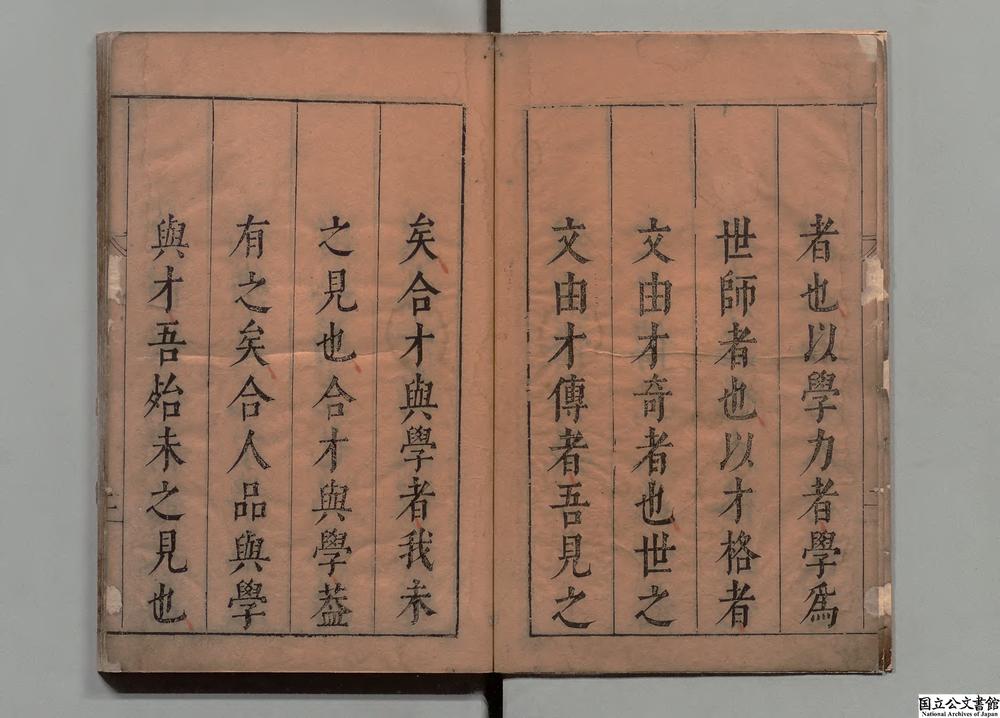 者也以學力者學爲
世師者也以才格者
文由才奇者也世之
文由才傳者吾見之
矣合才與學者我未
之見也合才與學葢
有之矣合人品與學
與才吾殆未之見也
国立公文書館
National Archives of Japan